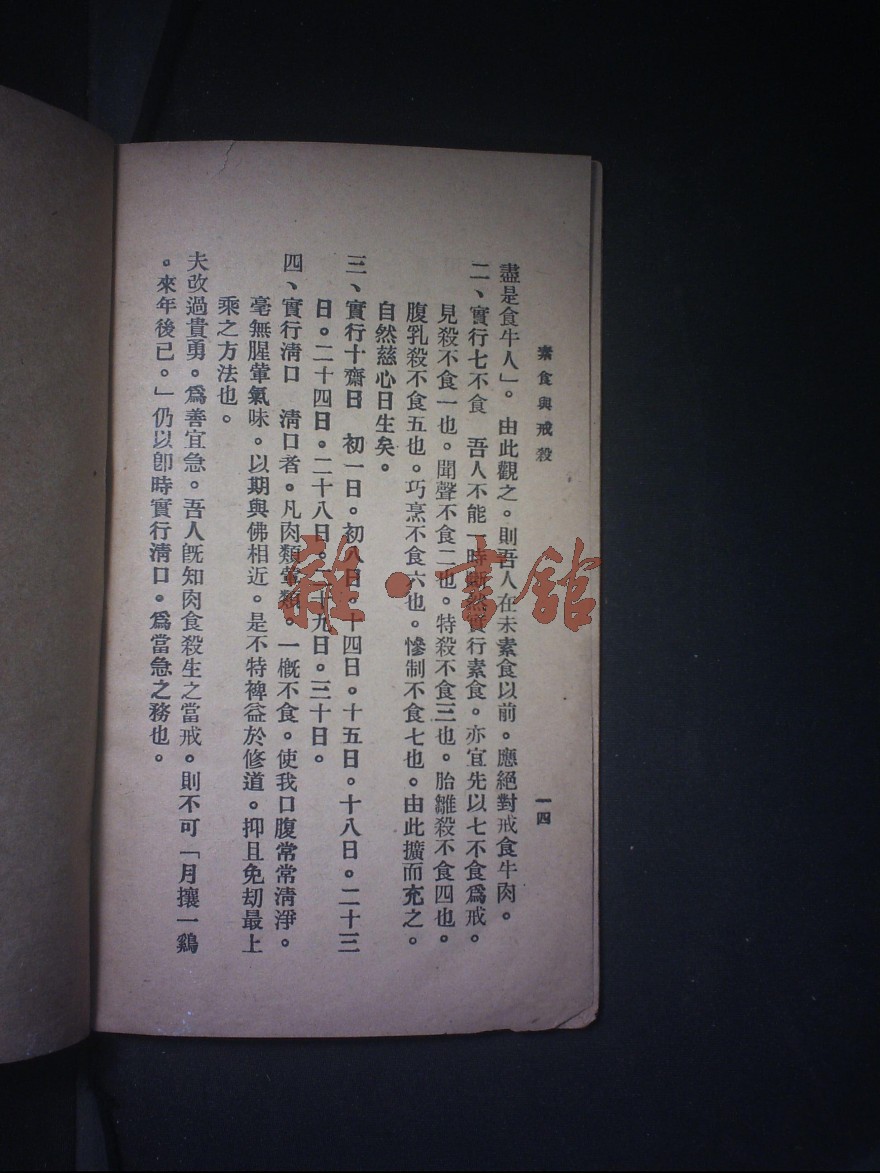 素食與戒殺
一四
盡是食牛人」。由此觀之。則吾人在未素食以前。應絕對戒食牛肉。
二、實行七不食　吾人不能一時斷然實行素食。亦宜先以七不食爲戒。
見殺不食一也。聞聲不食二也。特殺不食三也。胎雛殺不食四也。
腹乳殺不食五也。巧烹不食六也。慘制不食七也。由此擴而充之。
自然慈心日生矣。
三、實行十齋日　初一日。初八日。十四日。十五日。十八日。二十三
日。二十四日。二十八日。二十九日。三十日。
四、實行淸口　淸口者。凡肉類葷類。一槪不食。使我口腹常常淸淨。
毫無腥葷氣味。以期與佛相近。是不特裨益於修道。抑且免劫最上
乘之方法也。
夫改過貴勇。爲善宜急。吾人旣知肉食殺生之當戒。則不可「月攘一鷄
。來年後已。」仍以卽時實行淸口。爲當急之務也。
雜·書館